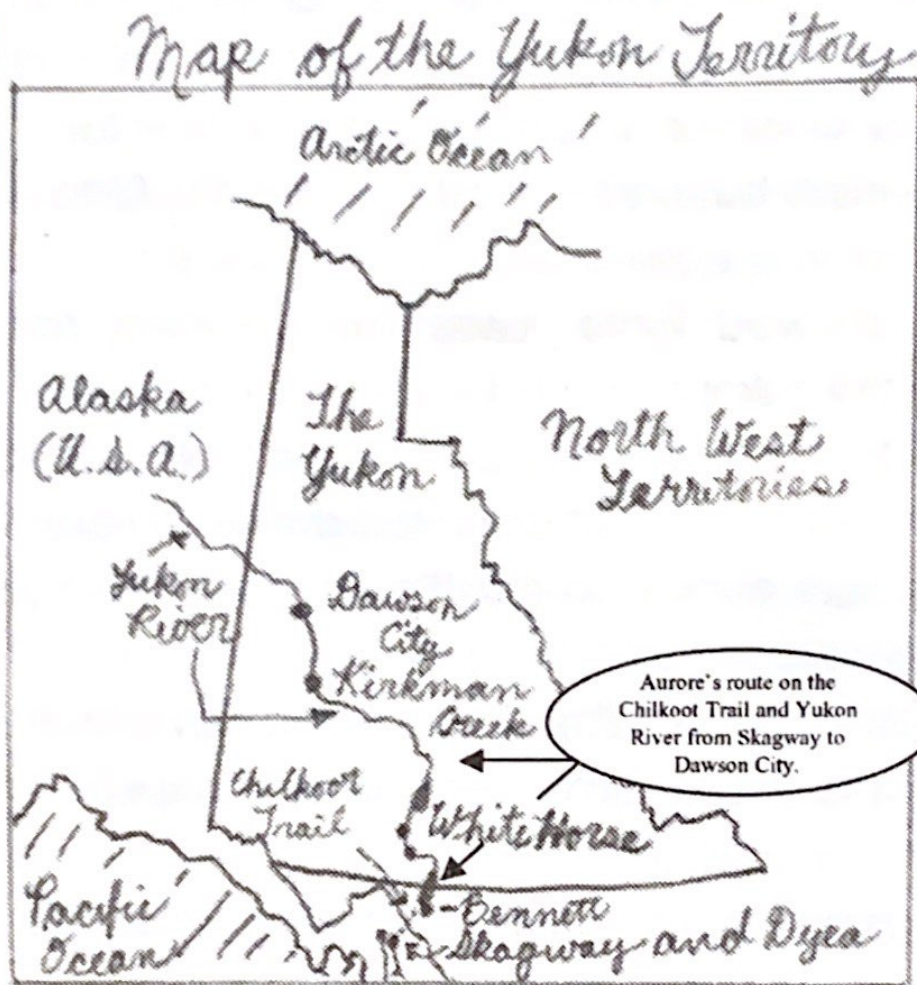 Map of the Yukon Territory
Arctic Ocean
Alaska
(U.S.A.)
The
Yukon
North West
Territories
Yukon
River
Dawson
City
Kirkman
Creek
Aurore's route on the
Chilkoot Trail and Yukon
River from Skagway to
Dawson City.
Chilkoot
Trail
White Horse
Pacific
Ocean
Bennett
Skagway and Dyea